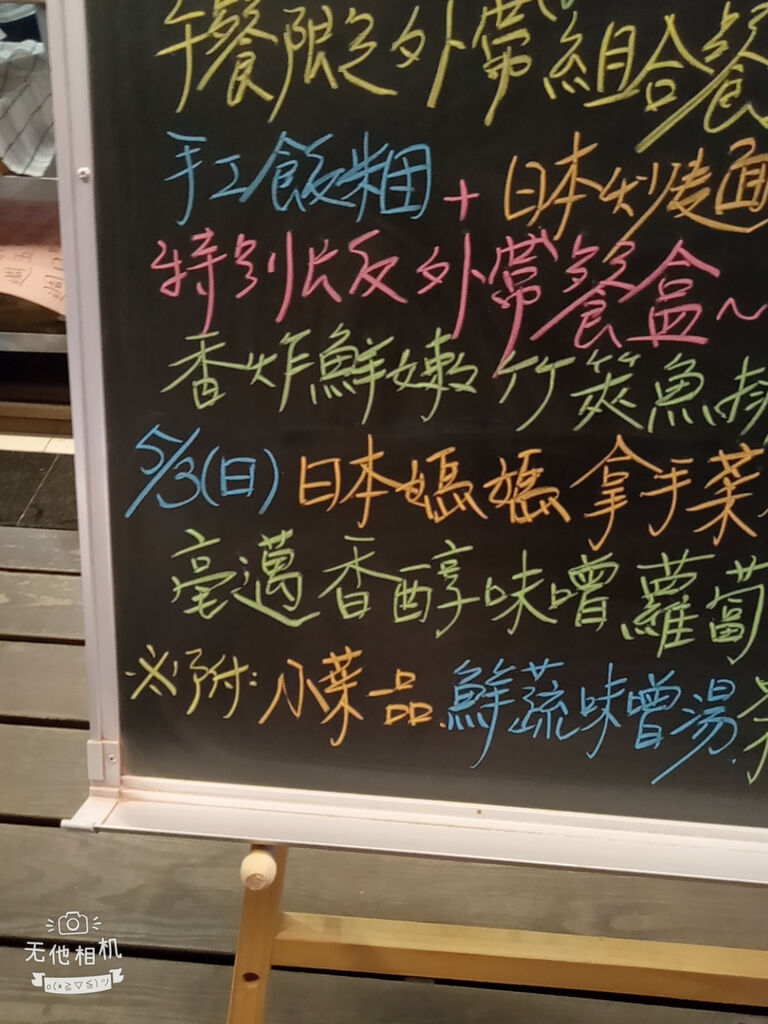 午餐限定外帶組合餐
手工飯糰+日本炒麵
特別版外帶餐盒~
香炸鮮嫩竹筴魚排
5/3(日)日本媽媽拿手菜
毫邁香醇味噌蘿蔔
※附:小菜一品.鮮蔬味噌湯.
无他相机